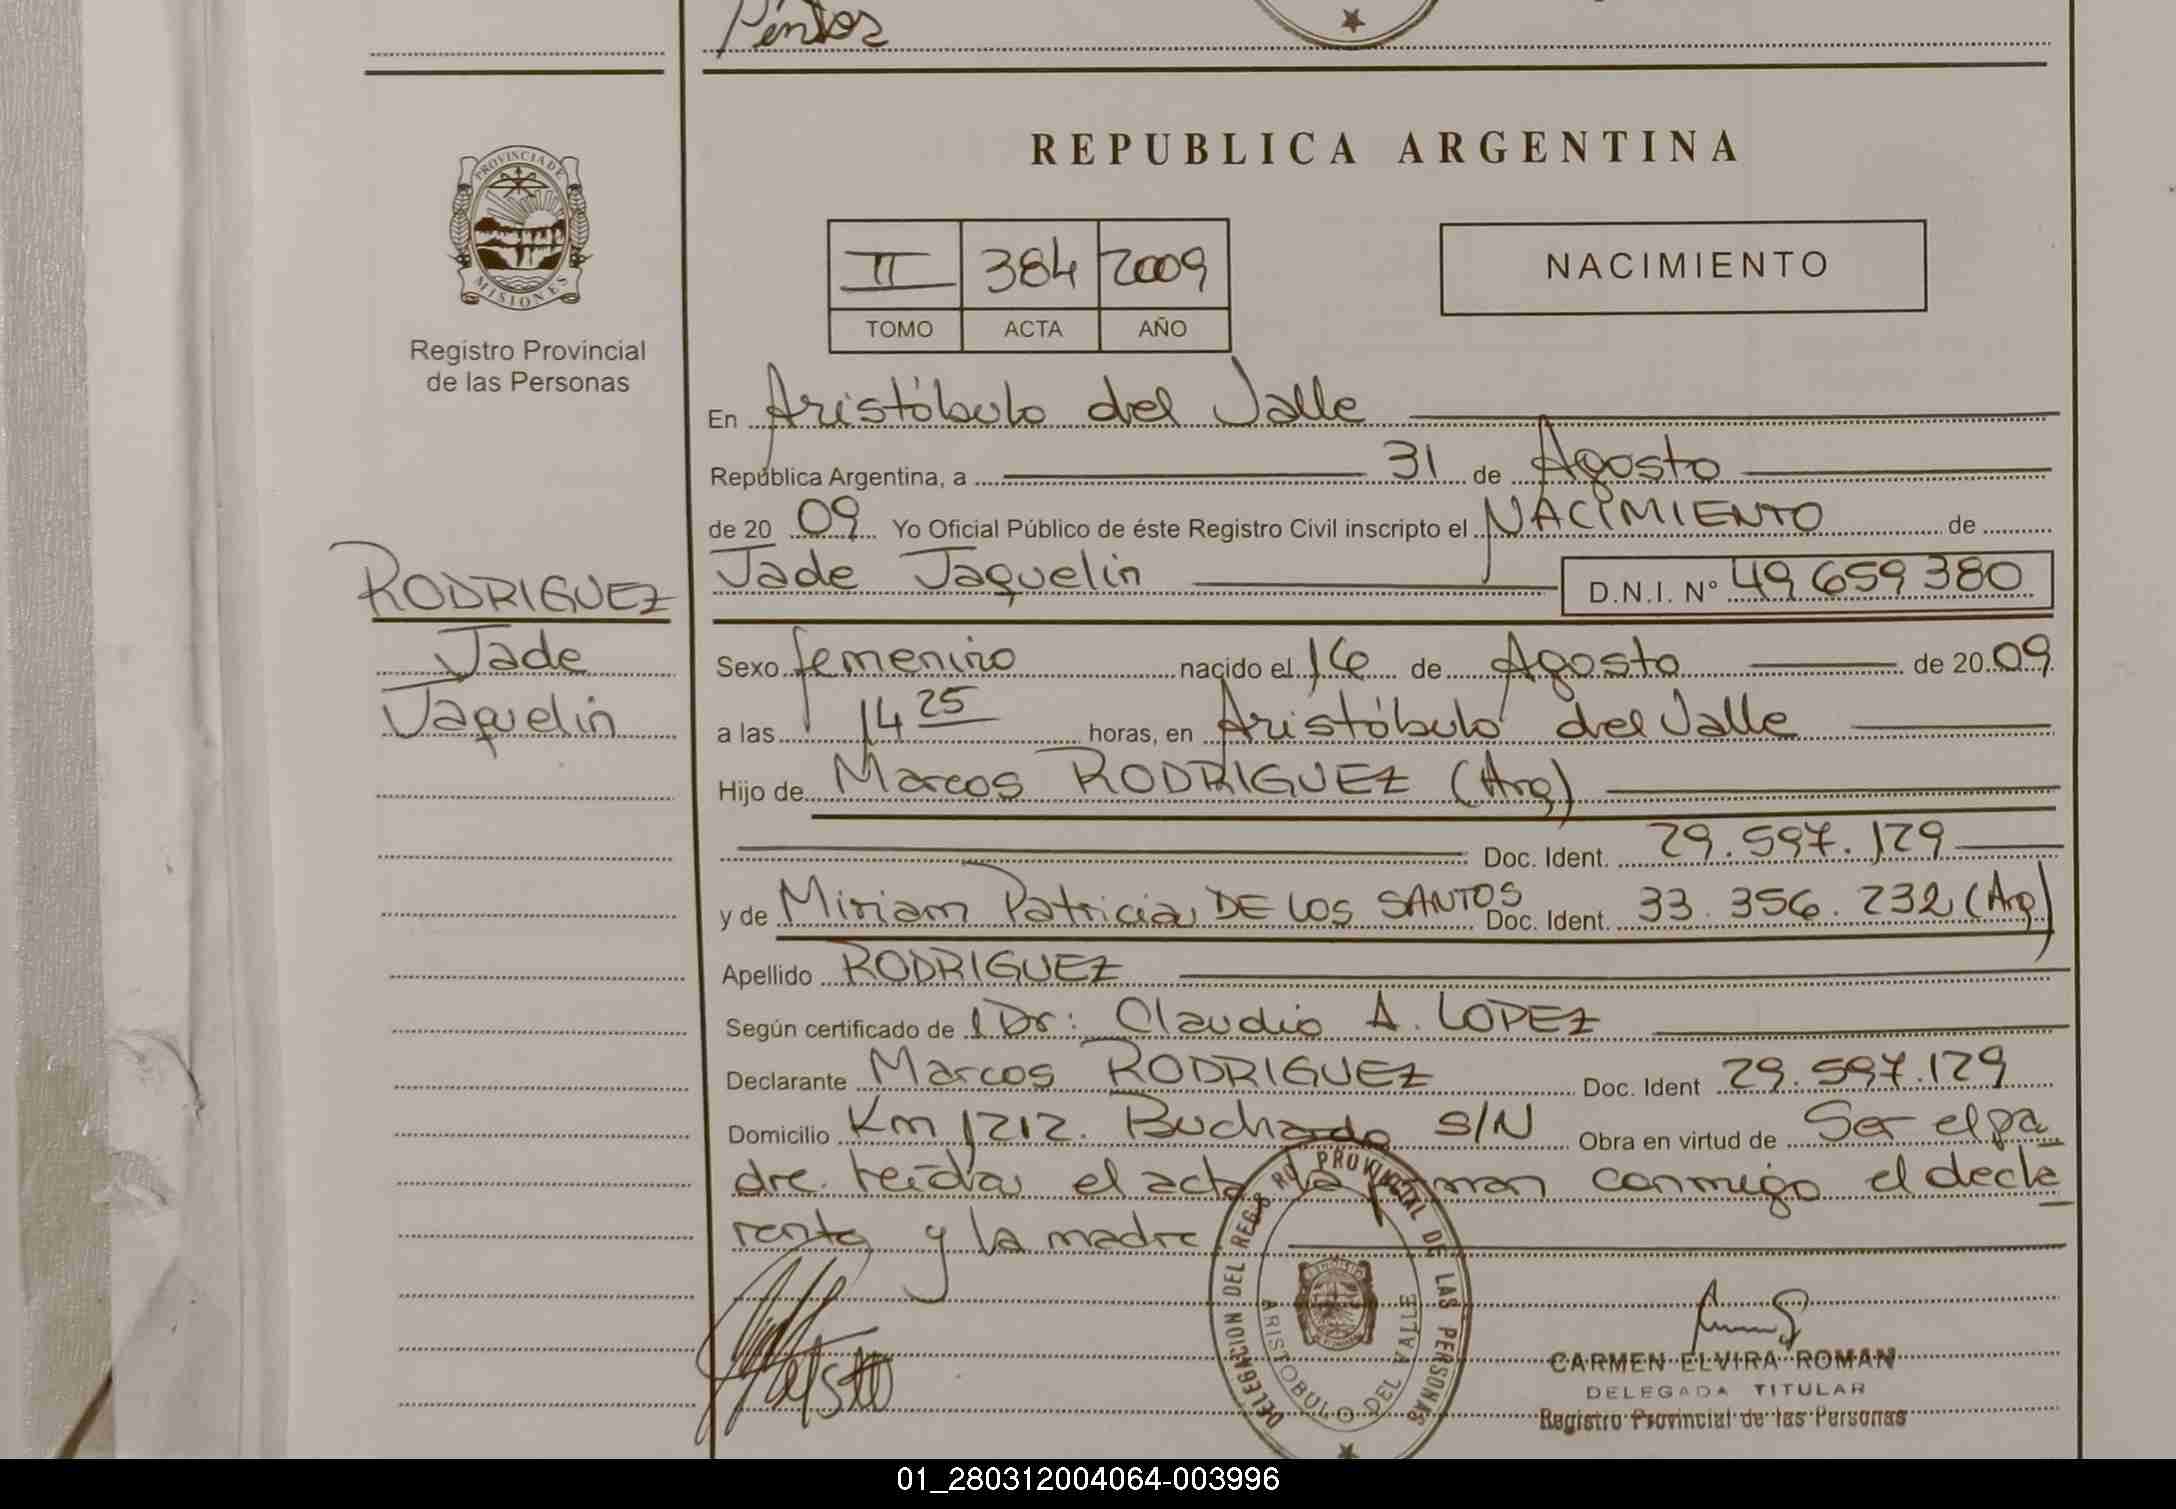 Pentos
PROVINCIA DE
MISIONES
Registro Provincial
de las Personas
REPUBLICA ARGENTINA
II 384 2009
TOMO ACTA AÑO
NACIMIENTO
En Aristóbulo del Valle
República Argentina, a 31 de Agosto
de 20 09 Yo Oficial Público de éste Registro Civil inscripto el NACIMIENTO de
RODRIGUEZ
Jade
Jaquelin
Jade Jaquelin D.N.I. Nº 49659380
Sexo femenino nacido el 16 de Agosto de 20 09
a las 14 25 horas, en Aristóbulo del Valle
Hijo de Marcos RODRIGUEZ (Arg)
Doc. Ident. 29.597.129
y de Miriam Patricia DE LOS SANTOS Doc. Ident. 33.356.232 (Arg)
Apellido RODRIGUEZ
Según certificado de Dr: Claudio A. LOPEZ
Declarante Marcos RODRIGUEZ Doc. Ident 29.597.129
Domicilio Km 1212. Buchardo S/N Obra en virtud de Ser el pa
dre. Leída el acta la firman conmigo el decla
rante y la madre
DELEGACION DEL REGISTRO PROVINCIAL DE LAS PERSONAS
ARISTOBULO DEL VALLE
CARMEN ELVIRA ROMAN
DELEGADA TITULAR
Registro Provincial de las Personas
01_280312004064-003996